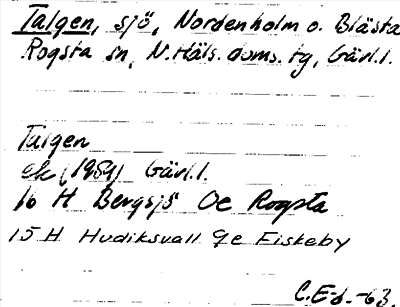 Talgen, sjö, Nordenholm o. Blästa
Rogsta sn, N. Häls. doms. tg, Gävl. l.
Talgen
ek (1959) Gävl. l.
16 H Bergsjö 0c Rogsta
15 H Hudiksvall 9e Fiskeby
C.E-d.-63.